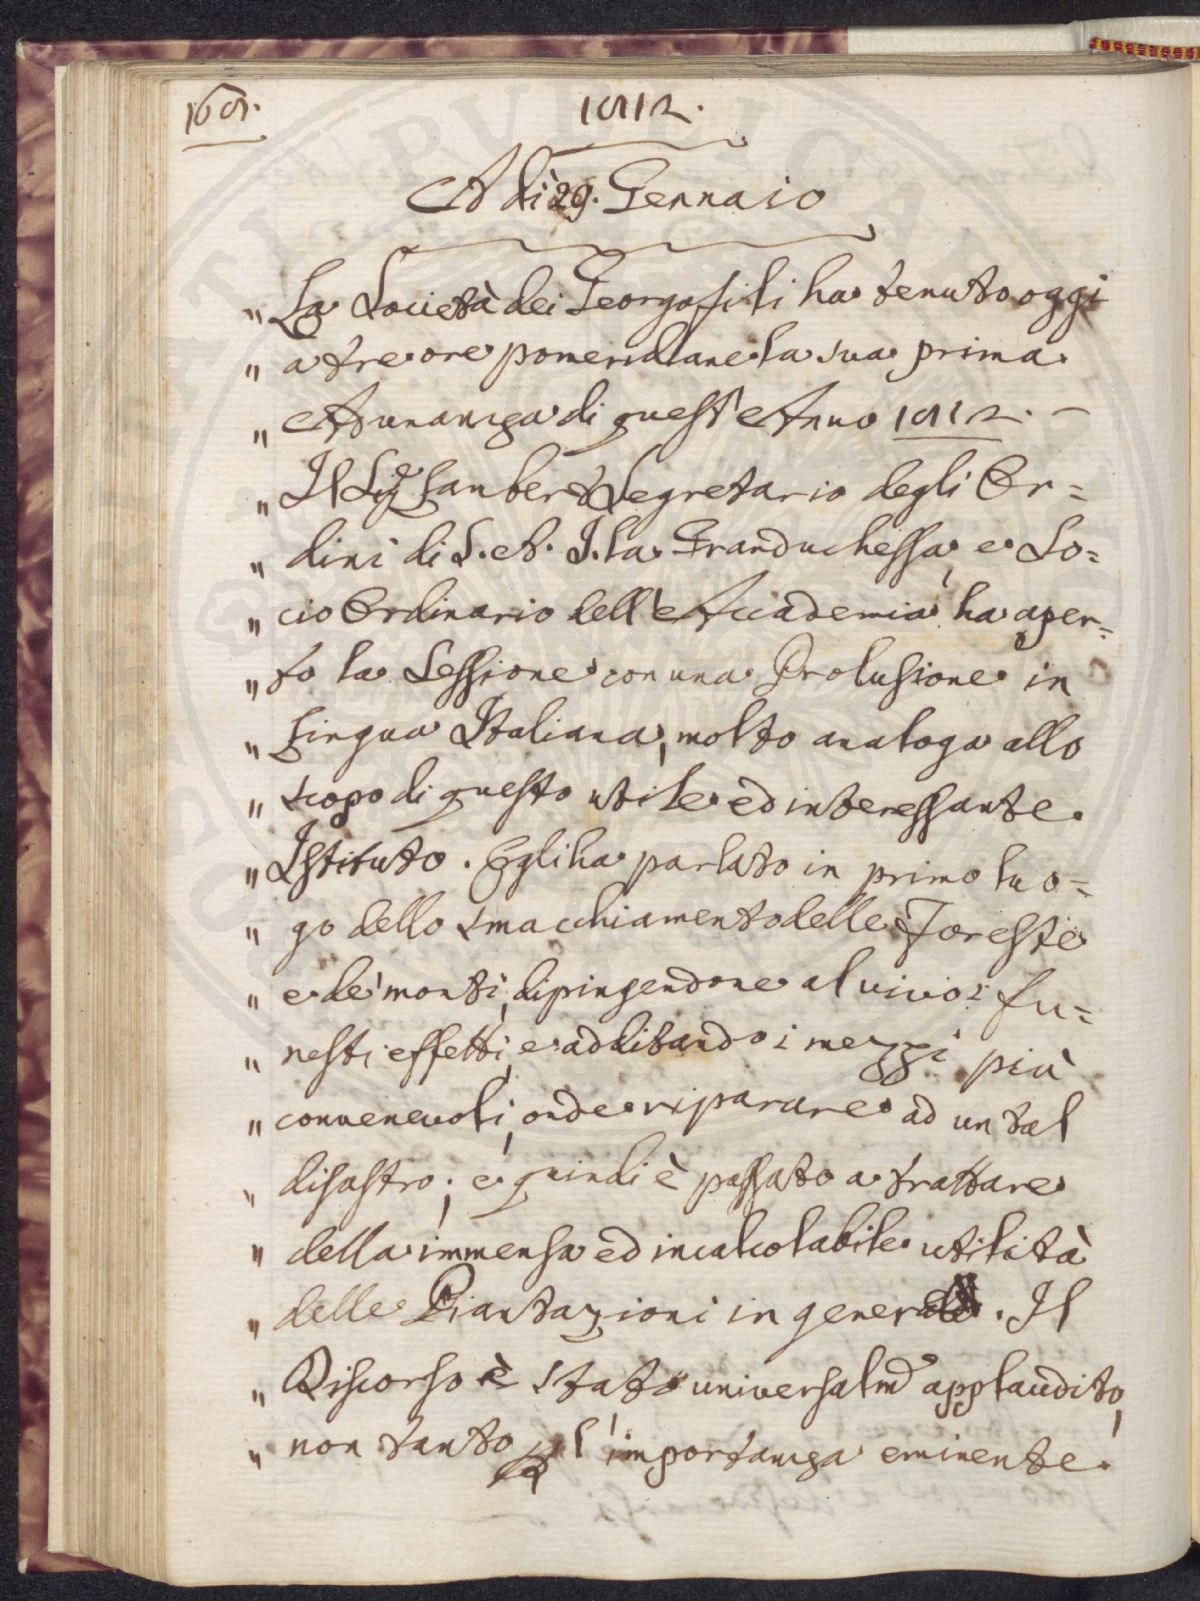 168.
1812.
A dì 29. Gennaio
„ La Società dei Georgofili ha tenuto oggi
„ a tre ore pomeridiane la sua prima
„ Adunanza di quest'Anno 1812. –
„ Il Sigᵉ Lambert Segretario degli Or=
„ dini di S. A. I. la Granduchessa, e So=
„ cio Ordinario dell'Accademia, ha aper=
„ to la Sessione con una Prolusione in
„ Lingua Italiana, molto analoga allo
„ scopo di questo utile ed interessante
„ Istituto. Egli ha parlato in primo luo=
„ go dello smacchiamento delle Foreste
„ e de' monti, dipingendone al vivo i fu=
„ nesti effetti, e additando i mezzi più
„ convenevoli, onde riparare ad un tal
„ disastro; e quindi è passato a trattare
„ della immensa ed incalcolabile utilità
„ delle Piantazioni in generale. Il
„ Discorso è stato universalmᵉ applaudito,
„ non tanto pl'importanza eminente